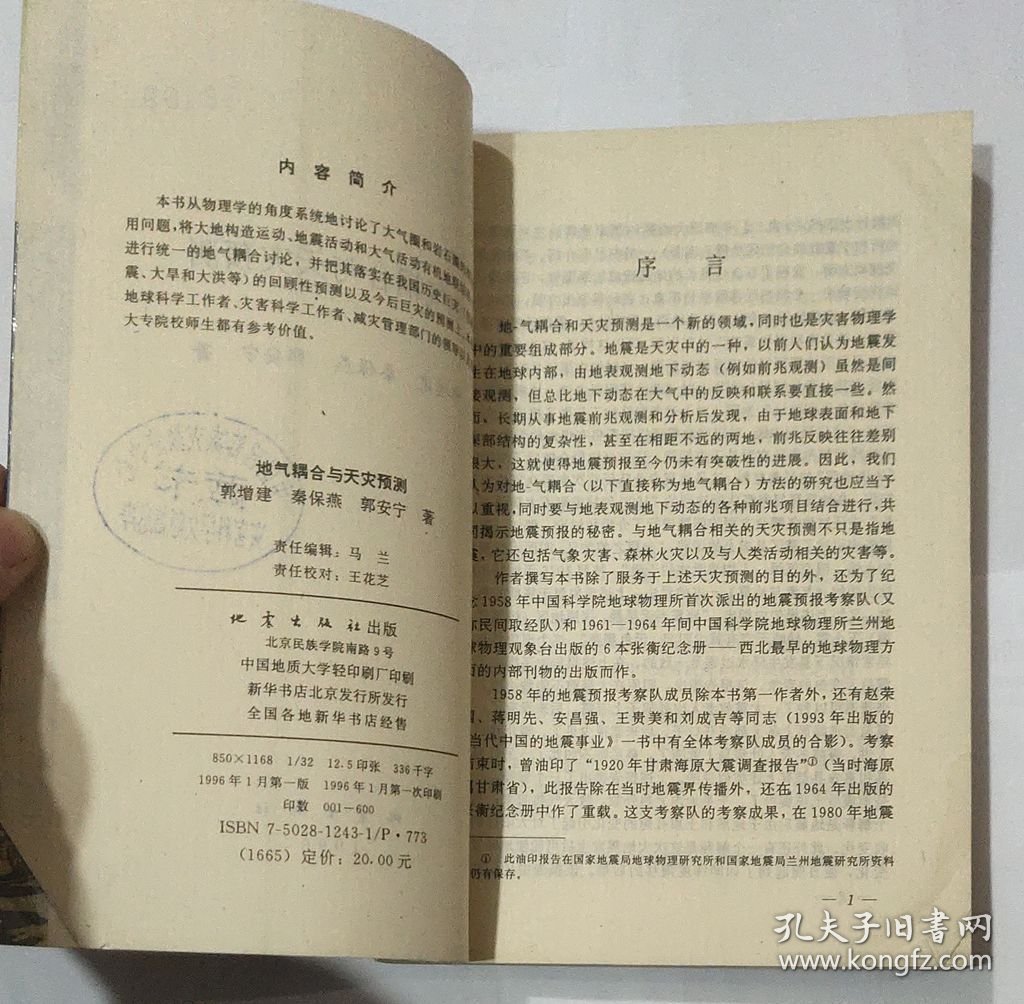 内容简介
本书从物理学的角度系统地讨论了大气圈和岩石圈
用问题,将大地构造运动、地震活动和大气活动有机地
进行统一的地气耦合讨论,并把其落实在我国历史巨灾
震、大旱和大洪等)的回顾性预测以及今后巨灾的预测上
地球科学工作者、灾害科学工作者、减灾管理部门的领导
大专院校师生都有参考价值。
地气耦合与天灾预测
郭增建 秦保燕 郭安宁 著
责任编辑:马 兰
责任校对:王花芝
地震出版社出版
北京民族学院南路9号
中国地质大学轻印刷厂印刷
新华书店北京发行所发行
全国各地新华书店经售
850×1168 1/32 12.5印张 336千字
1996年1月第一版 1996年1月第一次印刷
印数 001—600
ISBN 7-5028-1243-1/P·773
(1665)定价:20.00元
序 言
地-气耦合和天灾预测是一个新的领域,同时也是灾害物理学
中的重要组成部分。地震是天灾中的一种,以前人们认为地震发
生在地球内部,由地表观测地下动态(例如前兆观测)虽然是间
接观测,但总比地下动态在大气中的反映和联系要直接一些。然
而,长期从事地震前兆观测和分析后发现,由于地球表面和地下
深部结构的复杂性,甚至在相距不远的两地,前兆反映往往差别
很大,这就使得地震预报至今仍未有突破性的进展。因此,我们
认为对地-气耦合(以下直接称为地气耦合)方法的研究也应当予
以重视,同时要与地表观测地下动态的各种前兆项目结合进行,共
同揭示地震预报的秘密。与地气耦合相关的天灾预测不只是指地
震,它还包括气象灾害、森林火灾以及与人类活动相关的灾害等。
作者撰写本书除了服务于上述天灾预测的目的外,还为了纪
念1958年中国科学院地球物理所首次派出的地震预报考察队(又
称民间取经队)和1961—1964年间中国科学院地球物理所兰州地
球物理观象台出版的6本张衡纪念册——西北最早的地球物理方
面的内部刊物的出版而作。
1958年的地震预报考察队成员除本书第一作者外,还有赵荣
国、蒋明先、安昌强、王贵美和刘成吉等同志(1993年出版的
《当代中国的地震事业》一书中有全体考察队成员的合影)。考察
结束时,曾油印了“1920年甘肃海原大震调查报告”①(当时海原
属甘肃省),此报告除在当时地震界传播外,还在1964年出版的
张衡纪念册中作了重载。这支考察队的考察成果,在1980年地震
① 此油印报告在国家地震局地球物理研究所和国家地震局兰州地震研究所资料
仍有保存。
— 1 —
孔夫子旧书网
www.kongfz.com